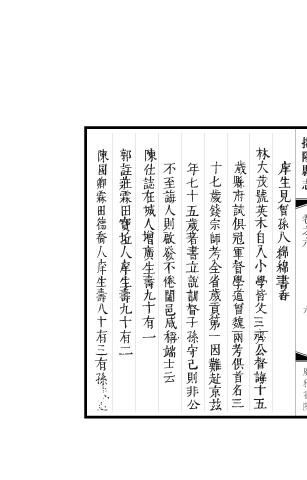 庠生見曾孫八綿綿書香
林大茂號英木自入小學皆父三濟公督誨十五
歲縣府試俱冠軍督學道曾魏兩考俱首名三
十七歲錢宗師考全省歲貢第一因難赴京茲
年七十五歲著書立說訓督子孫守己則非公
不至誨人則啟發不倦闔邑咸稱端士云
陳仕誌在城人增廣生壽九十有一
郭註莊霖田寶坵人庠生壽九十有二
陳國卿霖田德喬人庠生壽八十有三有孫
揭陽縣志
卷之六